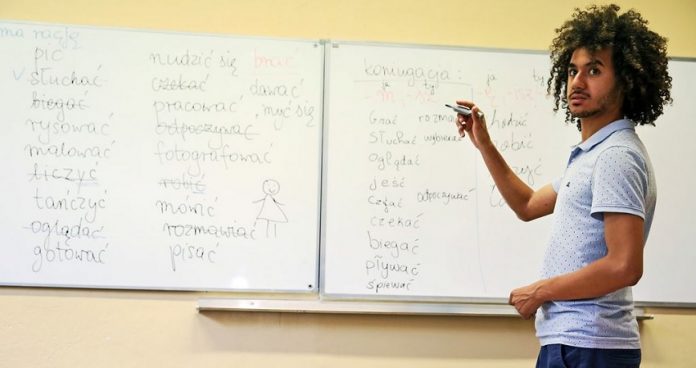 ma rację
pić
słuchać
biegać
rysować
malować
liczyć
tańczyć
oglądać
gotować
nudzić się brać
czekać dawać
pracować myć się
odpoczywać
fotografować
robić
mówić
rozmawiać
pisać
koniugacja:
ja ty
-m, -sz
Grać
słuchać wybierać
oglądać
jeść
czytać odpoczywać
czekać
biegać
pływać
śpiewać
ja ty